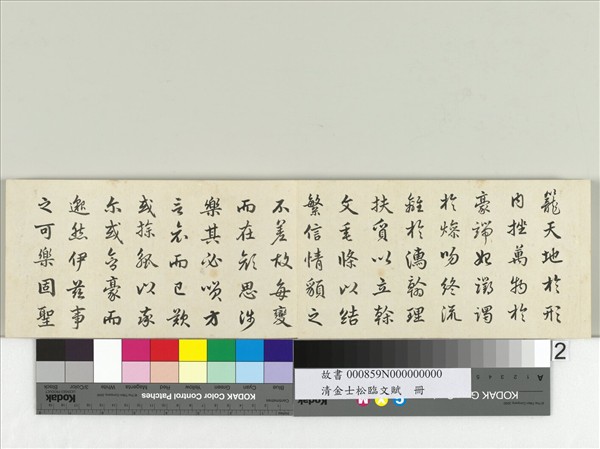 籠天地於形
內挫萬物於
豪端始躑躅
於燥吻終流
離於濡翰理
扶質以立幹
文垂條以結
繁信情貌之
不差故每變
而在顏思涉
樂其必笑方
言哀而已歎
或操觚以率
尔或含豪而
邈然伊茲事
之可樂固聖
2
故書 000859N000000000
清金士松臨文賦 冊
KODAK Color Control Patches
Blue Cyan Green Yellow Red Magenta White 3/Color Black
Kodak
KODAK G
A